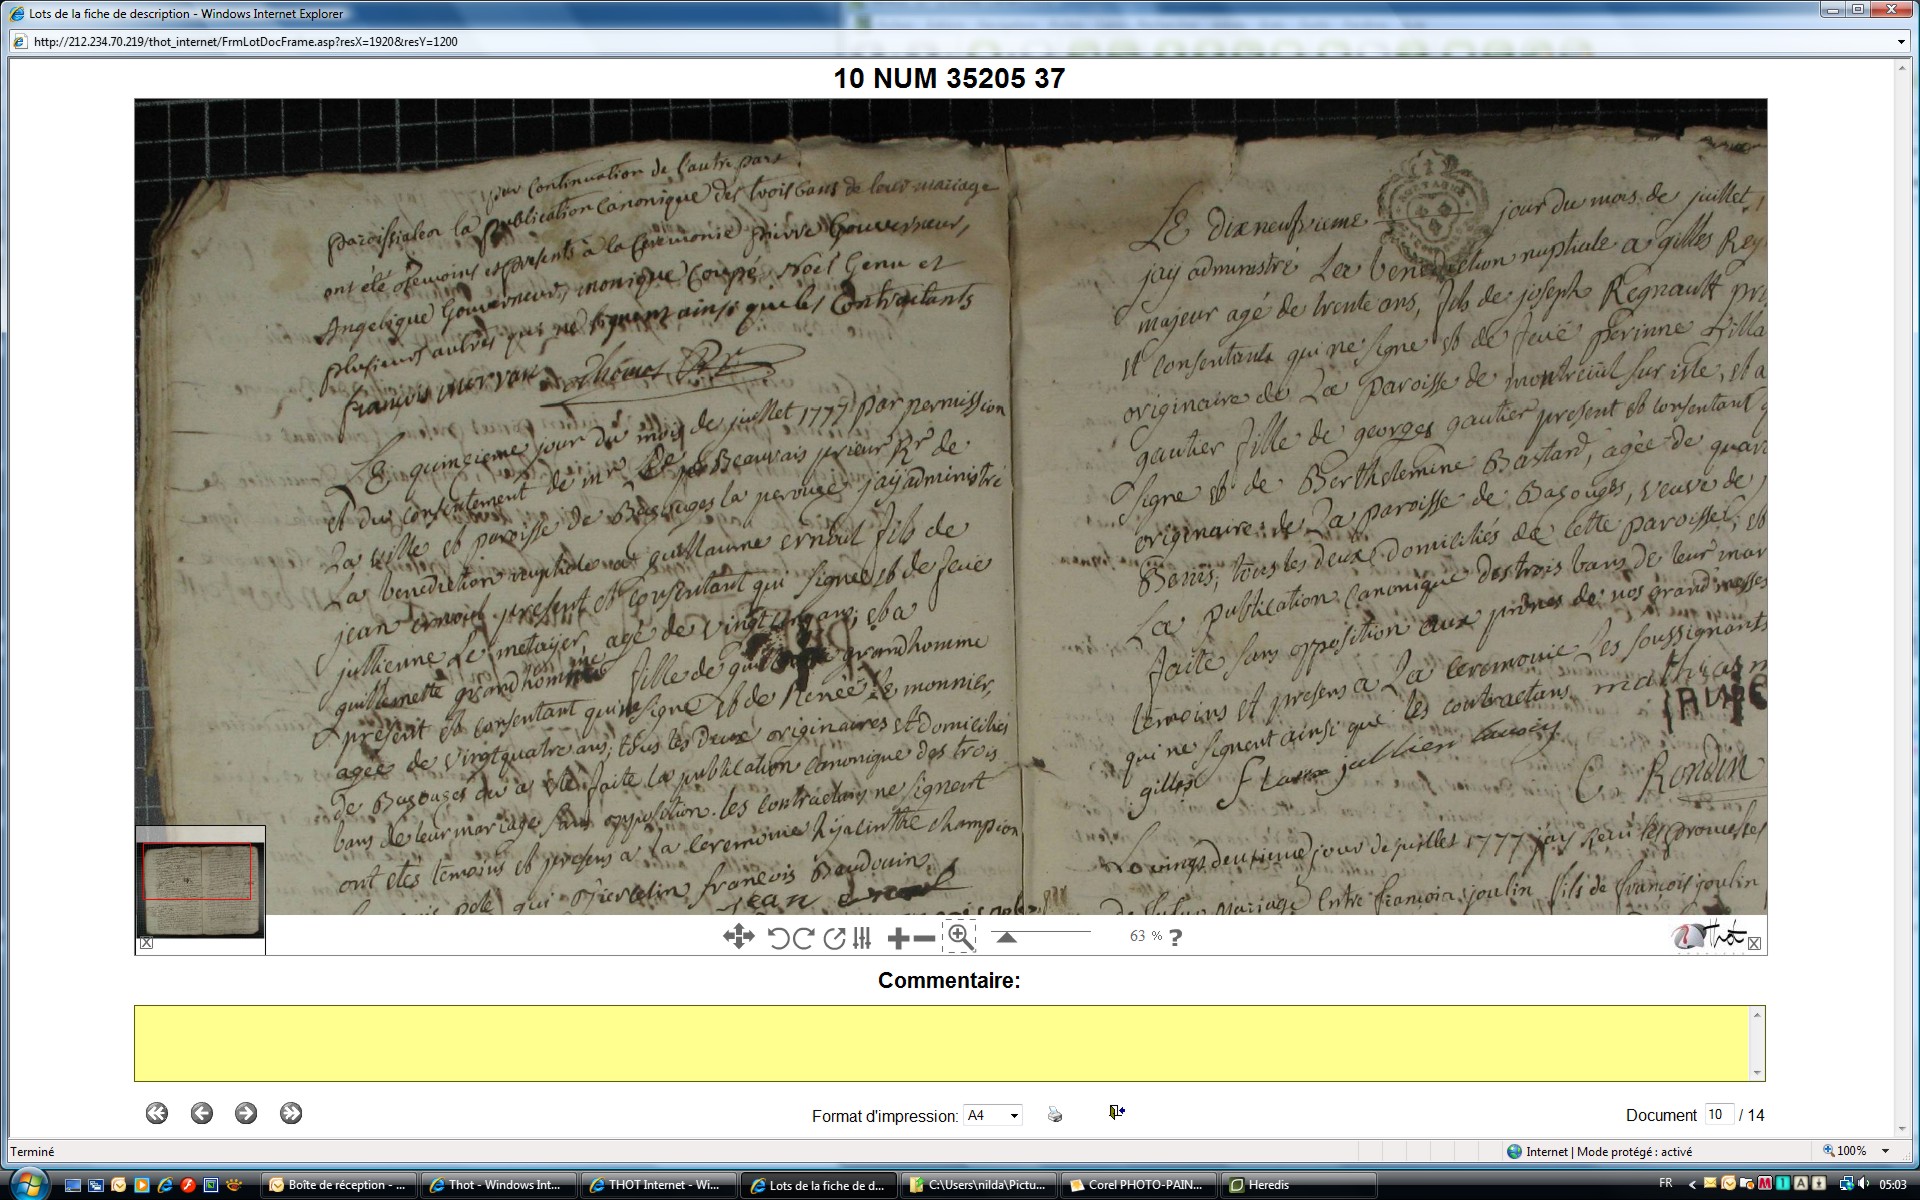 Lots de la fiche de description - Windows Internet Explorer
http://212.234.70.219/thot_internet/FrmLotDocFrame.asp?resX=1920&resY=1200
10 NUM 35205 37
pour Continuation de l'autre part
paroissialen la publication Canonique des trois bans de leur mariage
ont été témoins et présents à la Ceremonie pierre Gouverneur,
Angelique Gouverneur, monique Coupé, Noel Genu et
plusieurs autres qui ne signent ainsi que les Contraitants
francois Thomas
Le quinzieme jour du mois de juillet 1777 par permission
et du consentement de mr de Beauvais prieur Rr de
La ville et paroisse de Bazouges la perouze, jay administré
La benediction nuptiale a guillaume ernoul fils de
jean ernoul present et consentant qui signe et de feue
jullienne Le metayer, agé de vingt ans, et a
guillemette grandhomme fille de grandhomme
present et consentant qui ne signe et de Renée Le monnier,
agée de vingt quatre ans, tous les deux originaires et domiciliés
de Bazouges ou a été faite la publication canonique des trois
bans de leur mariage sans opposition. les contractans ne signent
ont etés temoins et presens a la ceremonie hyacinthe champion
qui francois Baudouin
jean ernoul
Le dixneufvieme jour du mois de juillet
jay administré La benediction nuptiale a gilles Reg
majeur agé de trente ans, fils de joseph Regnault pr
et consentant qui ne signe et de feue perinne
originaire de La paroisse de montreuil sur isle, et a
gautier fille de georges gautier present et consentant q
signe et de Berthelemine Bastard, agée de quar
originaire de La paroisse de Bazouges, veuve de
Benis, tous les deux domiciliés de cette paroisse, et
La publication canonique des trois bans de leur mar
faite sans opposition aux prônes de nos grand messes
temoins et presens a La ceremonie Les soussignants
qui ne signent ainsi que les contractans mathurin
gilles jullien
C. Rondin
Le vingt deuxieme jour de juillet 1777 jay
mariage Entre francois joulin fils de francois joulin
63 %
?
Thot
Commentaire:
Format d'impression: A4
Document 10 / 14
Terminé
Internet | Mode protégé : activé
100%
Boîte de réception - ...
Thot - Windows Int...
THOT Internet - Wi...
Lots de la fiche de d...
C:\Users\nilda\Pictu...
Corel PHOTO-PAIN...
Heredis
FR
05:03